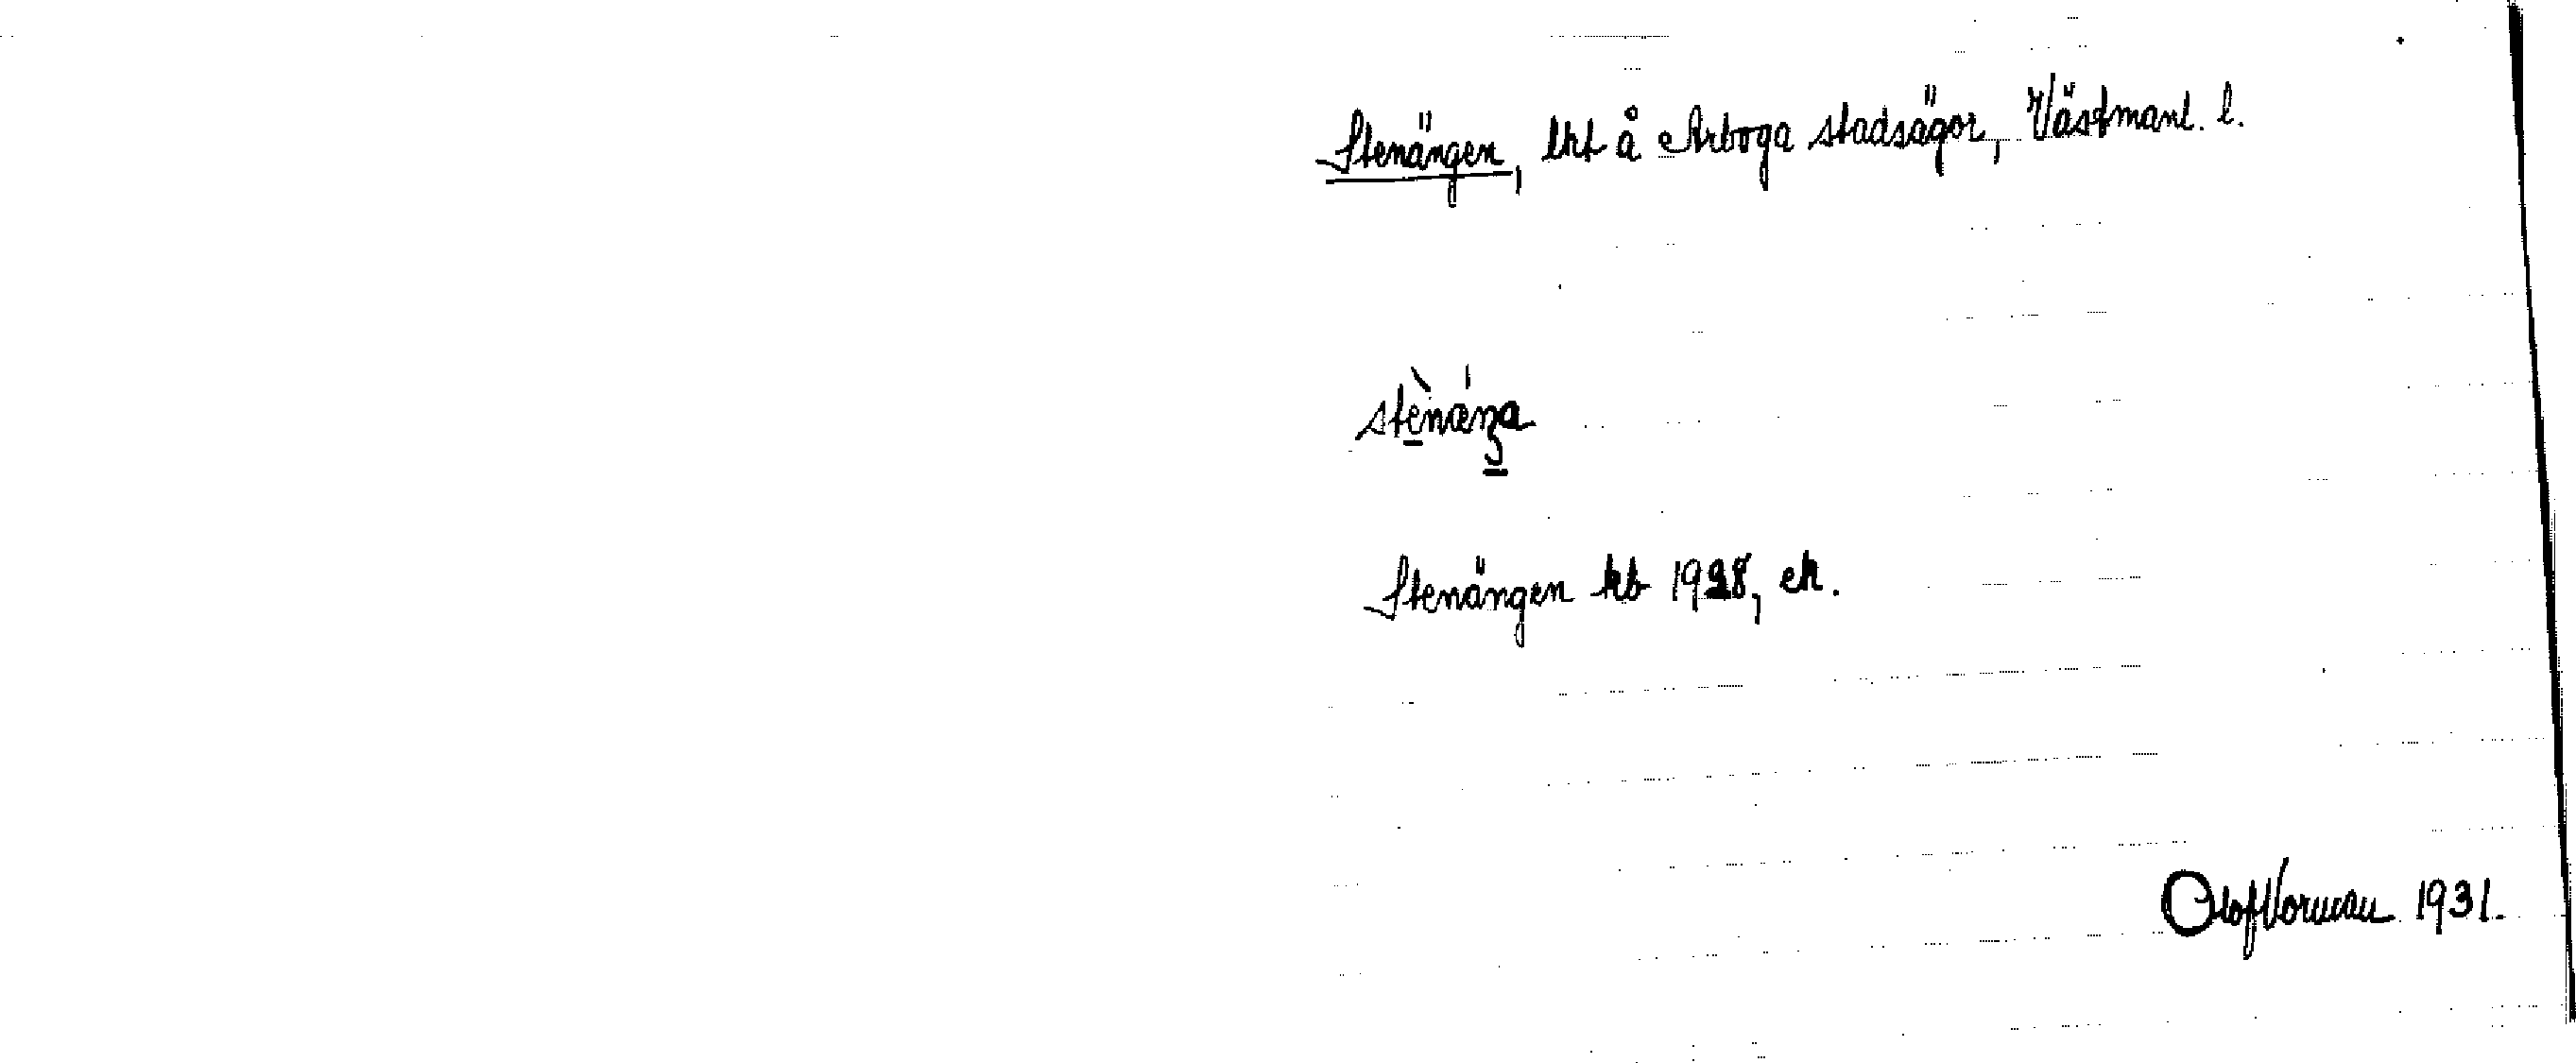 Stenängen, lht å Arboga stadsägor, Västmanl. l.
stènæŋa
Stenängen kb 1928, ek.
Olof Vorman 1931.